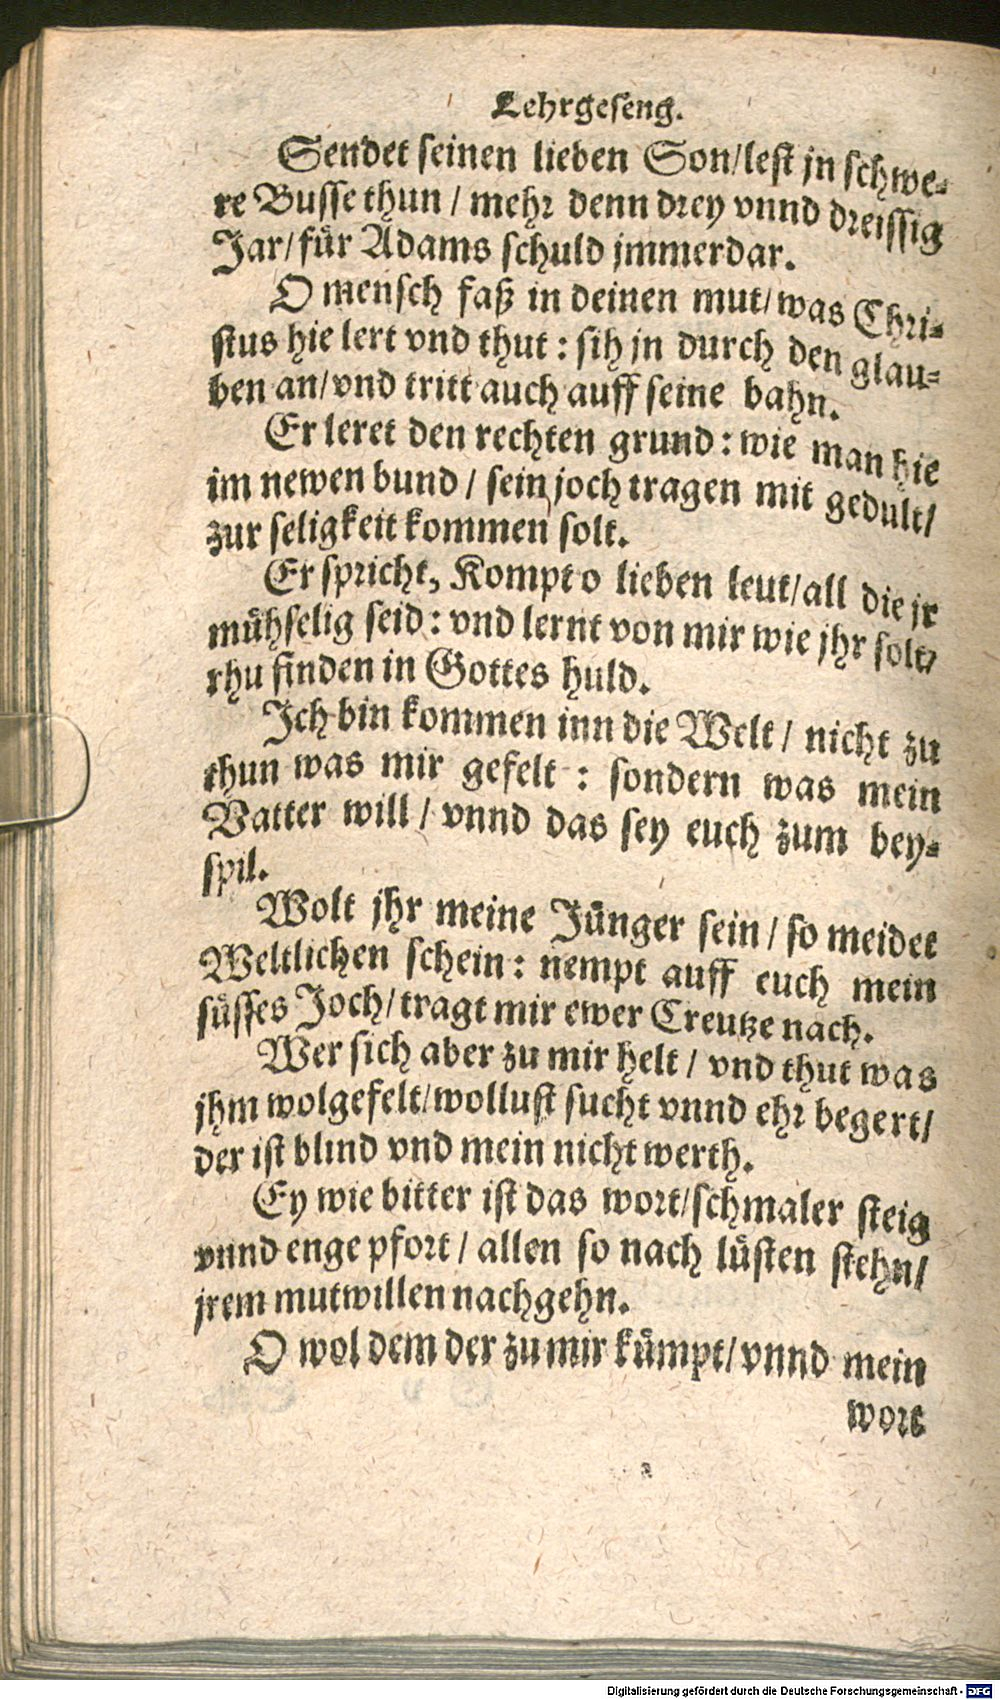 Lehrgeseng.
Sendet seinen lieben Son/lest jn schwe-
re Busse thun / mehr denn drey vnnd dreissig
Jar/für Adams schuld jmmerdar.
O mensch faß in deinen mut/was Chri-
stus hie lert vnd thut : sih jn durch den glau-
ben an/vnd tritt auch auff seine bahn.
Er leret den rechten grund : wie man hie
im newen bund / sein joch tragen mit gedult/
zur seligkeit kommen solt.
Er spricht, Kompt o lieben leut/all die jr
mühselig seid : vnd lernt von mir wie jhr solt/
rhu finden in Gottes huld.
Ich bin kommen inn die Welt / nicht zu
thun was mir gefelt : sondern was mein
Vatter will / vnnd das sey euch zum bey-
spil.
Wolt jhr meine Jünger sein / so meidet
Weltlichen schein : nempt auff euch mein
süsses Joch/tragt mir ewer Creutze nach.
Wer sich aber zu mir helt / vnd thut was
jhm wolgefelt/wollust sucht vnnd ehr begert/
der ist blind vnd mein nicht werth.
Ey wie bitter ist das wort/schmaler steig
vnnd enge pfort / allen so nach lüsten stehn/
jrem mutwillen nachgehn.
O wol dem der zu mir kümpt/vnnd mein
wort
Digitalisierung gefördert durch die Deutsche Forschungsgemeinschaft - DFG